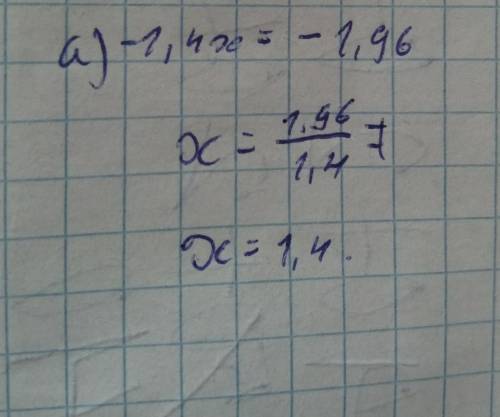 а) -1,4x = -1,96
x = 1,96/1,4 =
x = 1,4.